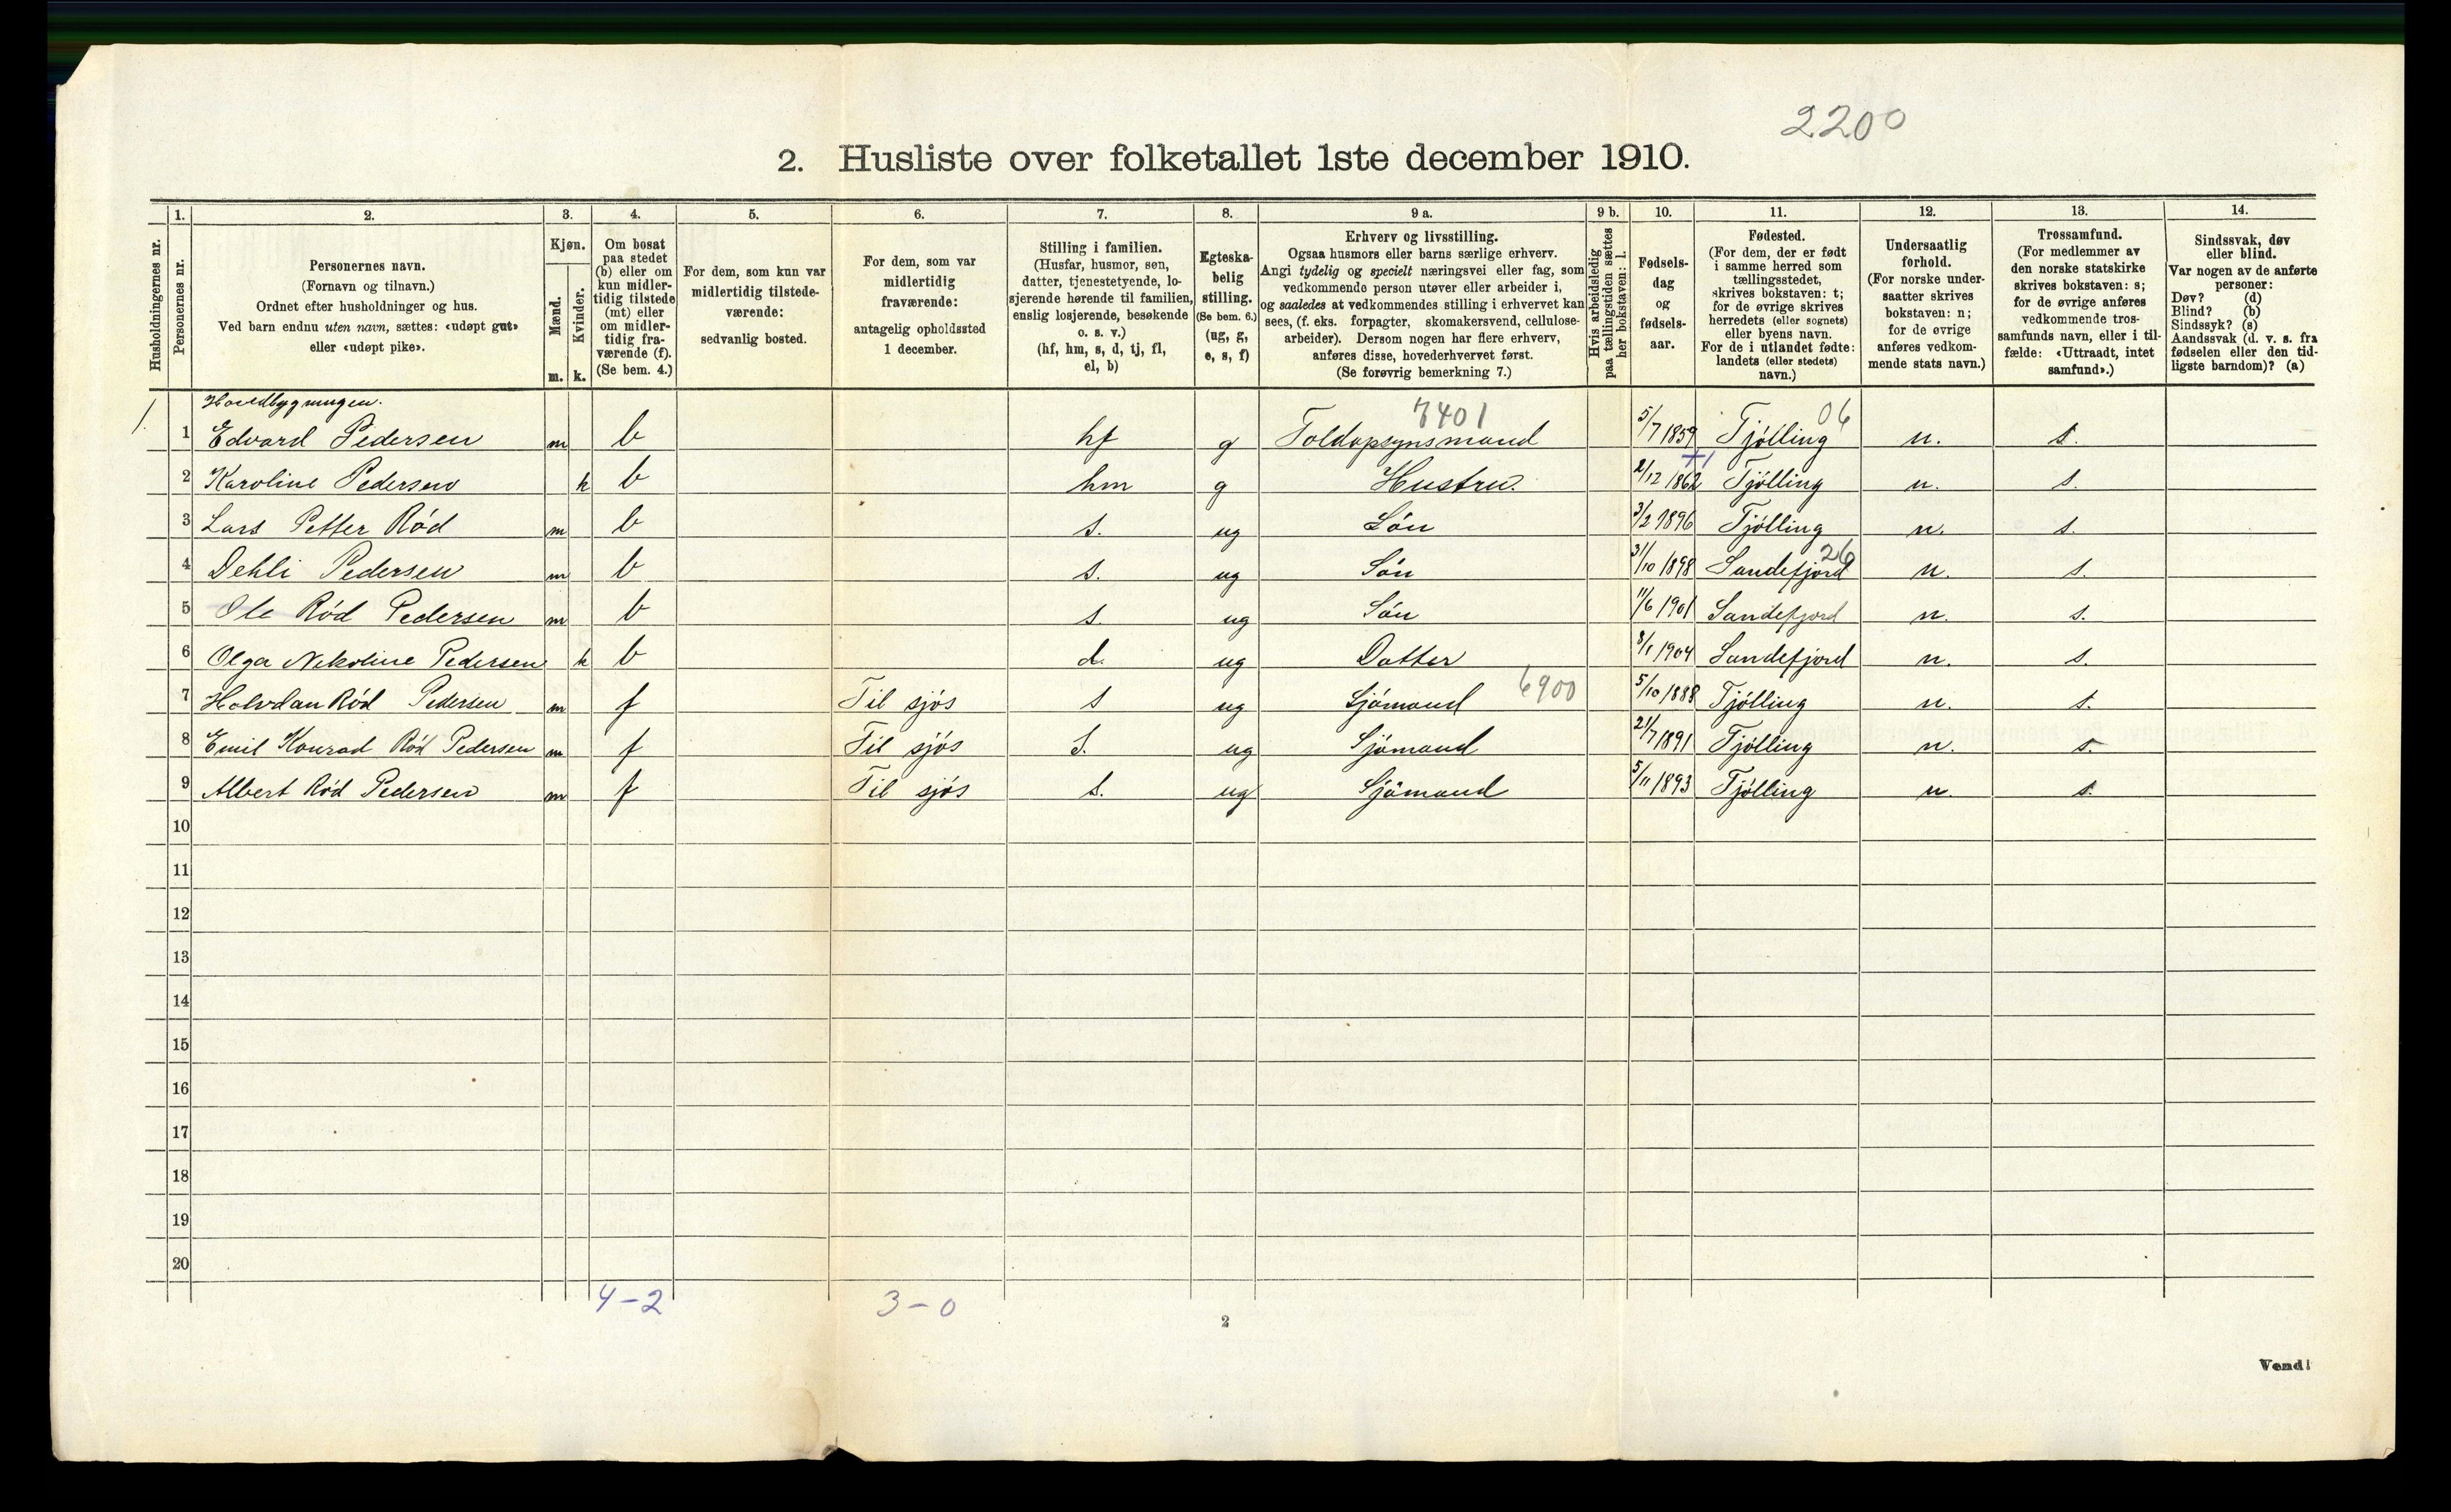 2200
2. Husliste over folketallet 1ste december 1910.
1. 2. 3. 4. 5. 6. 7. 8. 9 a. 9 b. 10. 11. 12. 13. 14.
Husholdningernes nr.
Personernes nr.
Personernes navn.
(Fornavn og tilnavn.)
Ordnet efter husholdninger og hus.
Ved barn endnu uten navn, sættes: «udøpt gut»
eller «udøpt pike».
Kjøn.
Mænd.
m.
Kvinder.
k.
Om bosat
paa stedet
(b) eller om
kun midler-
tidig tilstede
(mt) eller
om midler-
tidig fra-
værende (f).
(Se bem. 4.)
For dem, som kun var
midlertidig tilstede-
værende:
sedvanlig bosted.
For dem, som var
midlertidig
fraværende:
antagelig opholdssted
1 december.
Stilling i familien.
(Husfar, husmor, søn,
datter, tjenestetyende, lo-
sjerende hørende til familien,
enslig losjerende, besøkende
o. s. v.)
(hf, hm, s, d, tj, fl,
el, b)
Egteska-
belig
stilling.
(Se bem. 6.)
(ug, g,
e, s, f)
Erhverv og livsstilling.
Ogsaa husmors eller barns særlige erhverv.
Angi tydelig og specielt næringsvei eller fag, som
vedkommende person utøver eller arbeider i,
og saaledes at vedkommendes stilling i erhvervet kan
sees, (f. eks. forpagter, skomakersvend, cellulose-
arbeider). Dersom nogen har flere erhverv,
anføres disse, hovederhvervet først.
(Se forøvrig bemerkning 7.)
Hvis arbeidsledig
paa tællingstiden sættes
her bokstaven: l.
Fødsels-
dag
og
fødsels-
aar.
Fødested.
(For dem, der er født
i samme herred som
tællingsstedet,
skrives bokstaven: t;
for de øvrige skrives
herredets (eller sognets)
eller byens navn.
For de i utlandet fødte:
landets (eller stedets)
navn.)
Undersaatlig
forhold.
(For norske under-
saatter skrives
bokstaven: n;
for de øvrige
anføres vedkom-
mende stats navn.)
Trossamfund.
(For medlemmer av
den norske statskirke
skrives bokstaven: s;
for de øvrige anføres
vedkommende tros-
samfunds navn, eller i til-
fælde: «Uttraadt, intet
samfund».)
Sindssvak, døv
eller blind.
Var nogen av de anførte
personer:
Døv? (d)
Blind? (b)
Sindssyk? (s)
Aandssvak (d. v. s. fra
fødselen eller den tid-
ligste barndom)? (a)
Hovedbygningen. 7401 06
1. 1 Edvard Pedersen m b hf g Toldopsynsmand 5/7 1859 Tjölling n. s.
2 Karoline Pedersen k b hm g Hustru. 2/12 1862 Tjölling n. s.
3 Lars Petter Röd m b s. ug Sön 3/2 1896 Tjölling n. s.
26
4 Dehli Pedersen m b s. ug Sön 31/10 1898 Sandefjord n. s.
5 Ole Röd Pedersen m b s. ug Sön 11/6 1901 Sandefjord n. s.
6 Olga Nikoline Pedersen k b d. ug Datter 8/1 1904 Sandefjord n. s.
7 Halvdan Röd Pedersen m f Til sjös s ug Sjömand 6900 5/10 1888 Tjölling n. s.
8 Emil Konrad Röd Pedersen m f Til sjös S. ug Sjömand 21/7 1891 Tjölling n. s.
9 Albert Röd Pedersen m f Til sjös s. ug Sjömand 5/11 1893 Tjölling n. s.
10
11
12
13
14
15
16
17
18
19
20
4-2 3-0
2
Vend!